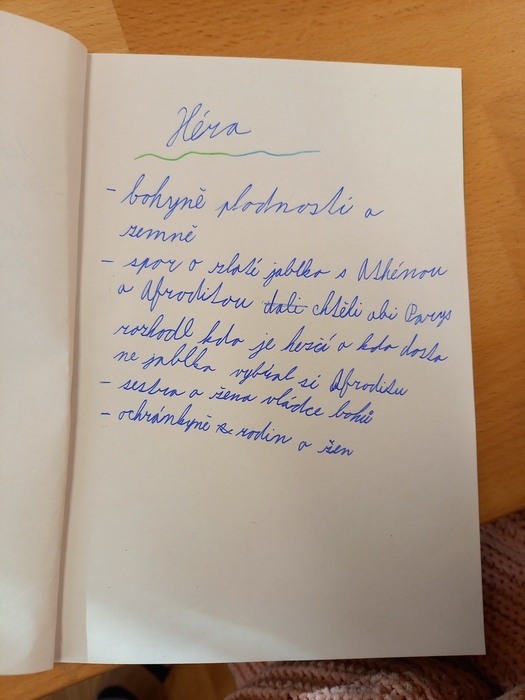 Héra
- bohyně plodnosti a
zemně
- spor o zlaté jablko s Athénou
a Afroditou dali chtěli abi Parys
rozhodl kdo je hezčí a kdo dosta
ne jablka vybral si Afroditu
- sestra a žena vládce bohů
- ochránkyně rodin a žen